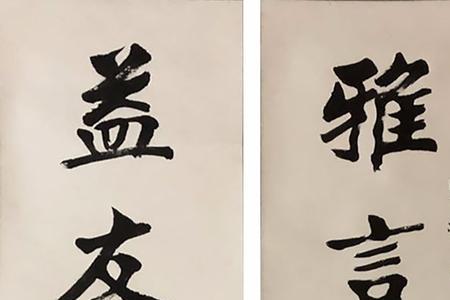 雅言
益友